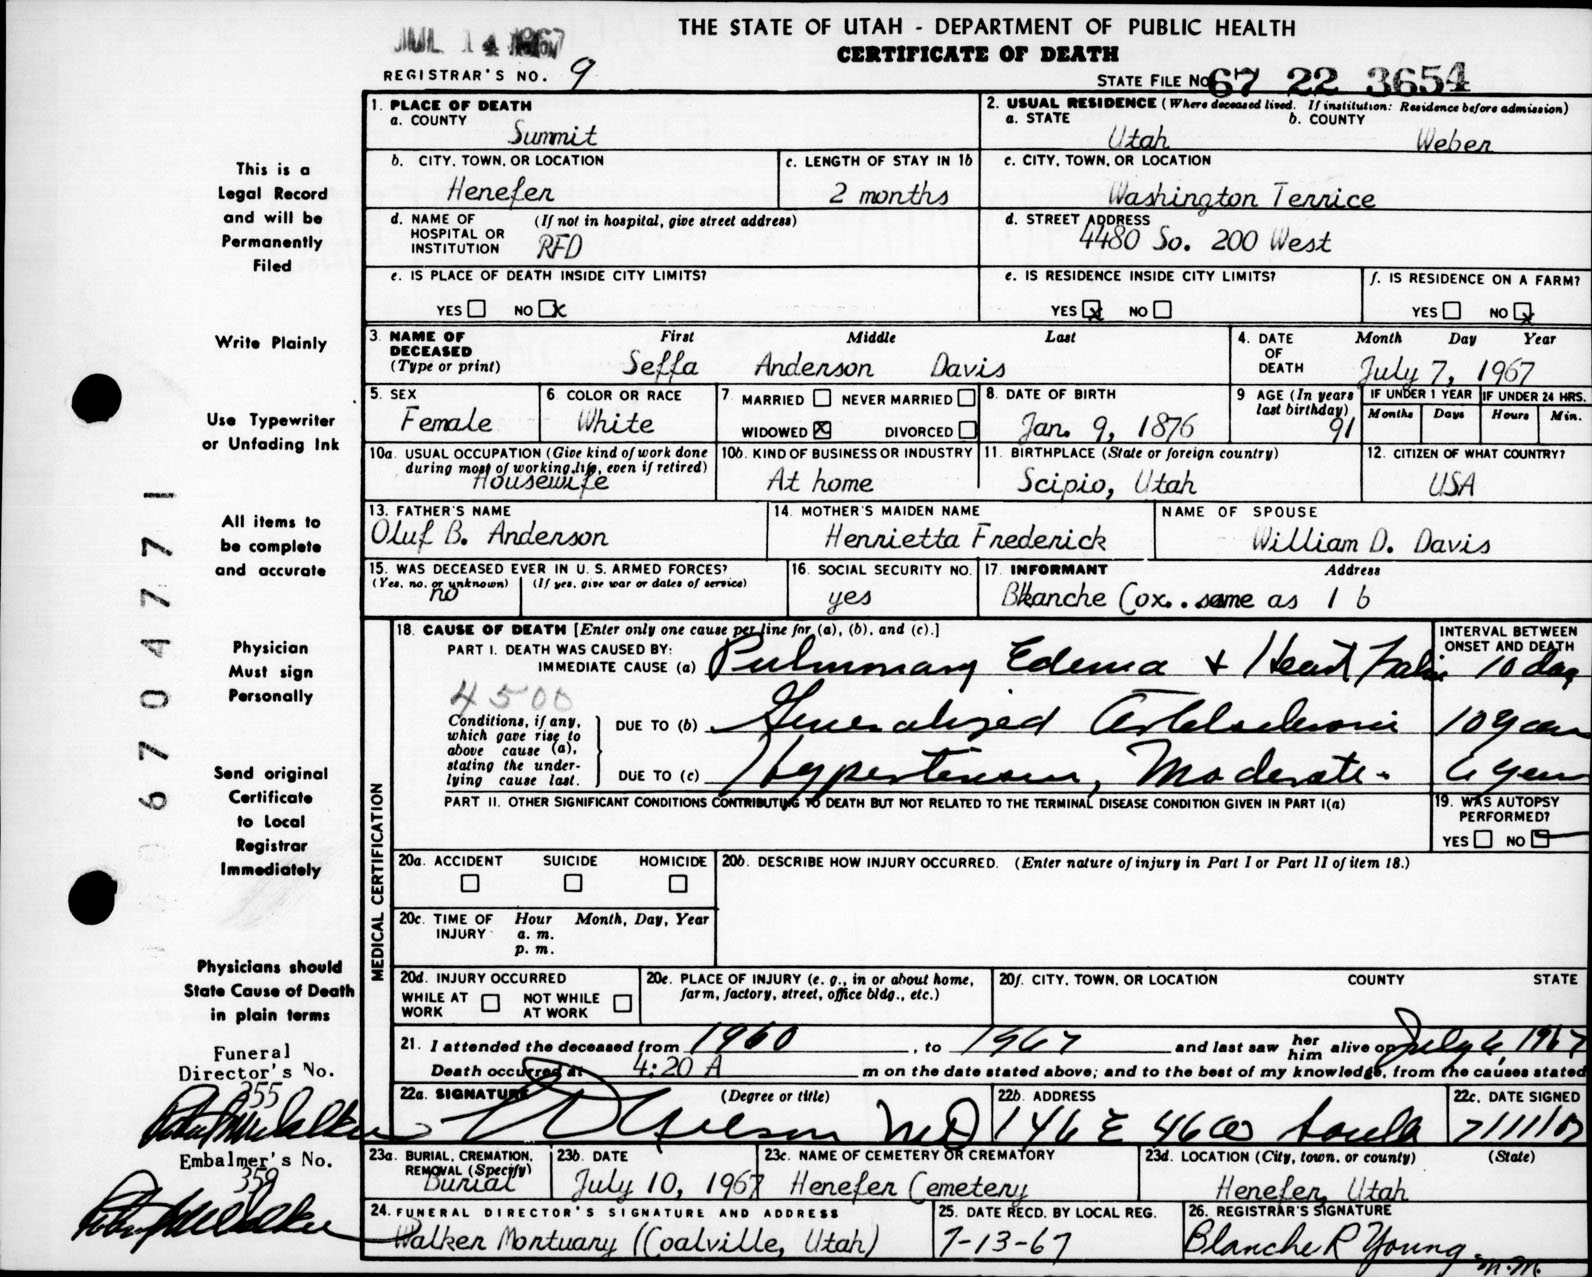 JUL 14 1967
THE STATE OF UTAH - DEPARTMENT OF PUBLIC HEALTH
CERTIFICATE OF DEATH
REGISTRAR'S NO. 9
STATE FILE NO. 67 22 3654
This is a
Legal Record
and will be
Permanently
Filed
Write Plainly
Use Typewriter
or Unfading Ink
All items to
be complete
and accurate
Physician
Must sign
Personally
Send original
Certificate
to Local
Registrar
Immediately
Physicians should
State Cause of Death
in plain terms
Funeral
Director's No.
355
Embalmer's No.
359
6704771
1. PLACE OF DEATH
a. COUNTY
Summit
2. USUAL RESIDENCE (Where deceased lived. If institution: Residence before admission)
a. STATE b. COUNTY
Utah Weber
b. CITY, TOWN, OR LOCATION
Henefer
c. LENGTH OF STAY IN 1b
2 months
c. CITY, TOWN, OR LOCATION
Washington Terrice
d. NAME OF (If not in hospital, give street address)
HOSPITAL OR
INSTITUTION RFD
d. STREET ADDRESS
4480 So. 200 West
e. IS PLACE OF DEATH INSIDE CITY LIMITS?
YES NO x
e. IS RESIDENCE INSIDE CITY LIMITS?
YES x NO
f. IS RESIDENCE ON A FARM?
YES NO x
3. NAME OF DECEASED (Type or print)
First Middle Last
Seffa Anderson Davis
4. DATE OF DEATH
Month Day Year
July 7, 1967
5. SEX
Female
6. COLOR OR RACE
White
7. MARRIED NEVER MARRIED
WIDOWED x DIVORCED
8. DATE OF BIRTH
Jan. 9, 1876
9. AGE (In years last birthday)
91
IF UNDER 1 YEAR
Months Days
IF UNDER 24 HRS.
Hours Min.
10a. USUAL OCCUPATION (Give kind of work done
during most of working life, even if retired)
Housewife
10b. KIND OF BUSINESS OR INDUSTRY
At home
11. BIRTHPLACE (State or foreign country)
Scipio, Utah
12. CITIZEN OF WHAT COUNTRY?
USA
13. FATHER'S NAME
Oluf B. Anderson
14. MOTHER'S MAIDEN NAME
Henrietta Frederick
NAME OF SPOUSE
William D. Davis
15. WAS DECEASED EVER IN U.S. ARMED FORCES?
(Yes, no, or unknown) (If yes, give war or dates of service)
no
16. SOCIAL SECURITY NO.
yes
17. INFORMANT Address
Blanche Cox.. same as 1 b
MEDICAL CERTIFICATION
18. CAUSE OF DEATH [Enter only one cause per line for (a), (b), and (c).]
PART I. DEATH WAS CAUSED BY:
IMMEDIATE CAUSE (a) Pulmonary Edema + Heart
INTERVAL BETWEEN
ONSET AND DEATH
10 day
4500
Conditions, if any,
which gave rise to
above cause (a),
stating the under-
lying cause last.
DUE TO (b) Generalized 10 year
DUE TO (c) Hypertension, Moderate. 6 year
PART II. OTHER SIGNIFICANT CONDITIONS CONTRIBUTING TO DEATH BUT NOT RELATED TO THE TERMINAL DISEASE CONDITION GIVEN IN PART I(a)
19. WAS AUTOPSY
PERFORMED?
YES NO
20a. ACCIDENT SUICIDE HOMICIDE
20b. DESCRIBE HOW INJURY OCCURRED. (Enter nature of injury in Part I or Part II of item 18.)
20c. TIME OF INJURY
Hour Month, Day, Year
a. m.
p. m.
20d. INJURY OCCURRED
WHILE AT WORK NOT WHILE AT WORK
20e. PLACE OF INJURY (e. g., in or about home,
farm, factory, street, office bldg., etc.)
20f. CITY, TOWN, OR LOCATION COUNTY STATE
21. I attended the deceased from 1960, to 1967 and last saw her him alive on July 6, 1967
Death occurred at 4:20 A m on the date stated above; and to the best of my knowledge, from the causes stated
22a. SIGNATURE (Degree or title)
MD
22b. ADDRESS
146 E 4600 South
22c. DATE SIGNED
7/11/67
23a. BURIAL, CREMATION,
REMOVAL (Specify)
Burial
23b. DATE
July 10, 1967
23c. NAME OF CEMETERY OR CREMATORY
Henefer Cemetery
23d. LOCATION (City, town, or county) (State)
Henefer, Utah
24. FUNERAL DIRECTOR'S SIGNATURE AND ADDRESS
Walker Mortuary (Coalville, Utah)
25. DATE RECD. BY LOCAL REG.
7-13-67
26. REGISTRAR'S SIGNATURE
Blanche R Young
m.m.